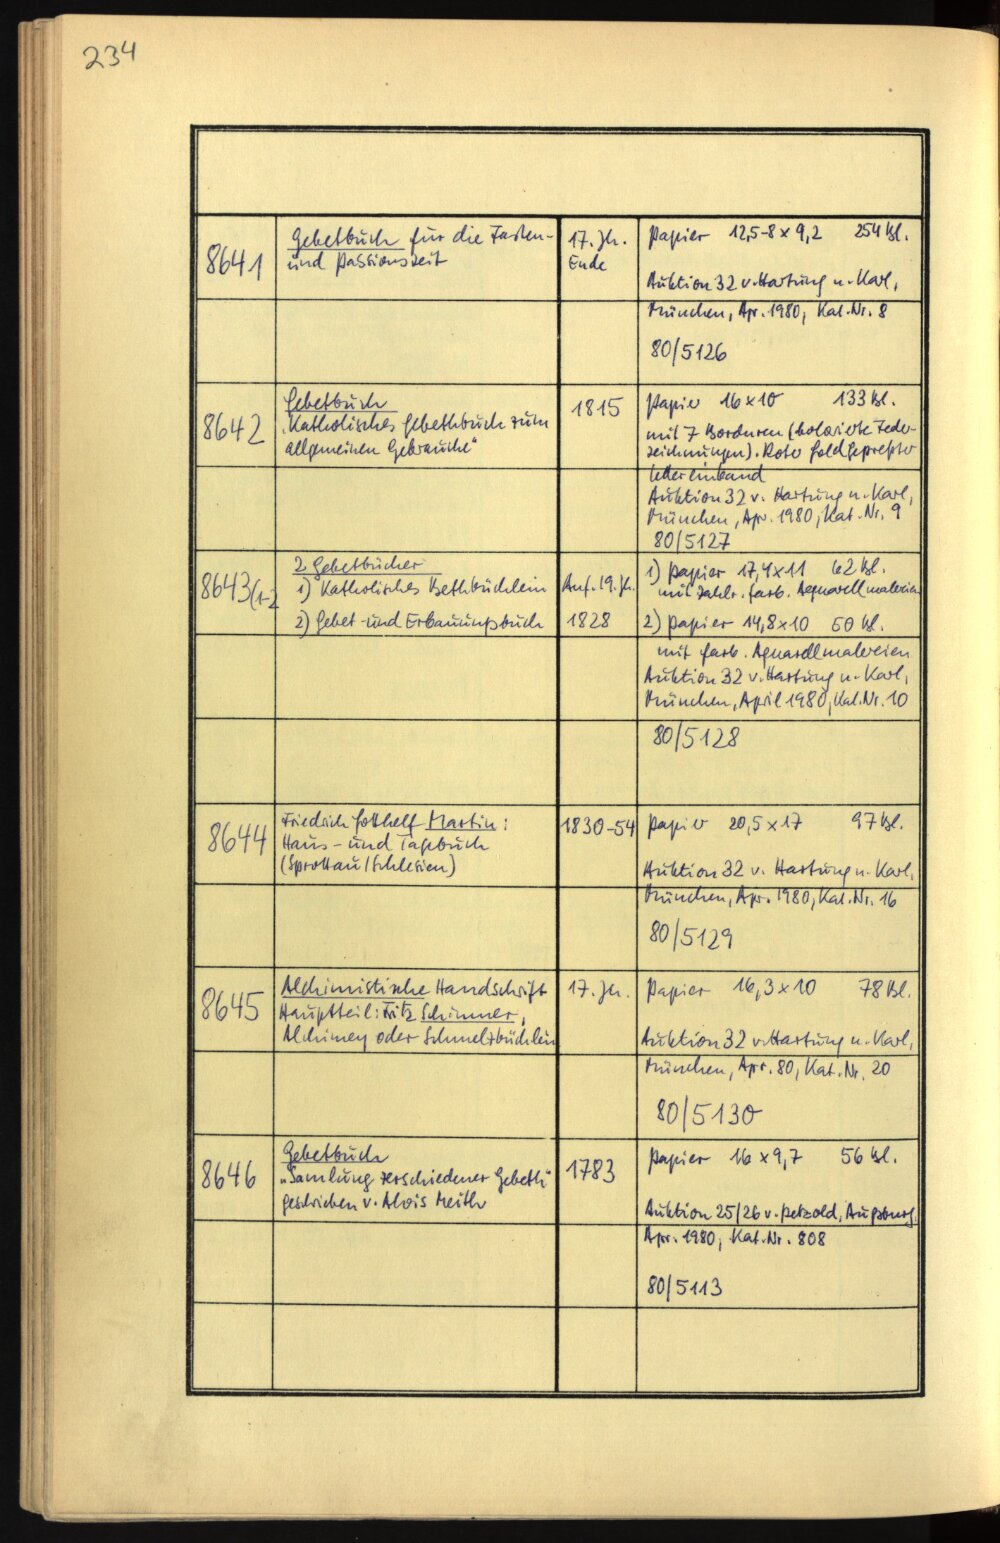 234
8641
Gebetbuch für die Fasten-
und Passionszeit
17. Jh.
Ende
Papier 12,5-8 x 9,2 254 Bl.
Auktion 32 v. Hartung u. Karl,
München, Apr. 1980, Kat. Nr. 8
80/5126
8642
Gebetbuch
"Katholisches Gebethbuch zum
allgemeinen Gebrauche"
1815
Papier 16 x 10 133 Bl.
mit 7 Borduren (kolorierte Feder-
zeichnungen). Roter Goldgepreßter
Ledereinband
Auktion 32 v. Hartung u. Karl,
München, Apr. 1980, Kat. Nr. 9
80/5127
8643(1-2
2 Gebetbücher
1) Katholisches Bethbüchlein
2) Gebet- und Erbauungsbuch
Anf. 19. Jh.
1828
1) Papier 17,4 x 11 62 Bl.
mit zahlr. farb. Aquarellmalereien
2) Papier 14,8 x 10 50 Bl.
mit farb. Aquarellmalereien
Auktion 32 v. Hartung u. Karl,
München, April 1980, Kat. Nr. 10
80/5128
8644
Friedrich Gotthelf Martin:
Haus- und Tagbuch
(Sprottau/Schlesien)
1830-54
Papier 20,5 x 17 97 Bl.
Auktion 32 v. Hartung u. Karl,
München, Apr. 1980, Kat. Nr. 16
80/5129
8645
Alchimistische Handschrift
Hauptteil: Fritz Schimmer,
Alchimey oder Schmelzbüchlein
17. Jh.
Papier 16,3 x 10 78 Bl.
Auktion 32 v. Hartung u. Karl,
München, Apr. 80, Kat. Nr. 20
80/5130
8646
Gebetbuch
"Samlung verschiedener Gebeth"
geschrieben v. Alois
1783
Papier 16 x 9,7 56 Bl.
Auktion 25/26 v. Petzold, Augsburg,
Apr. 1980, Kat. Nr. 808
80/5113